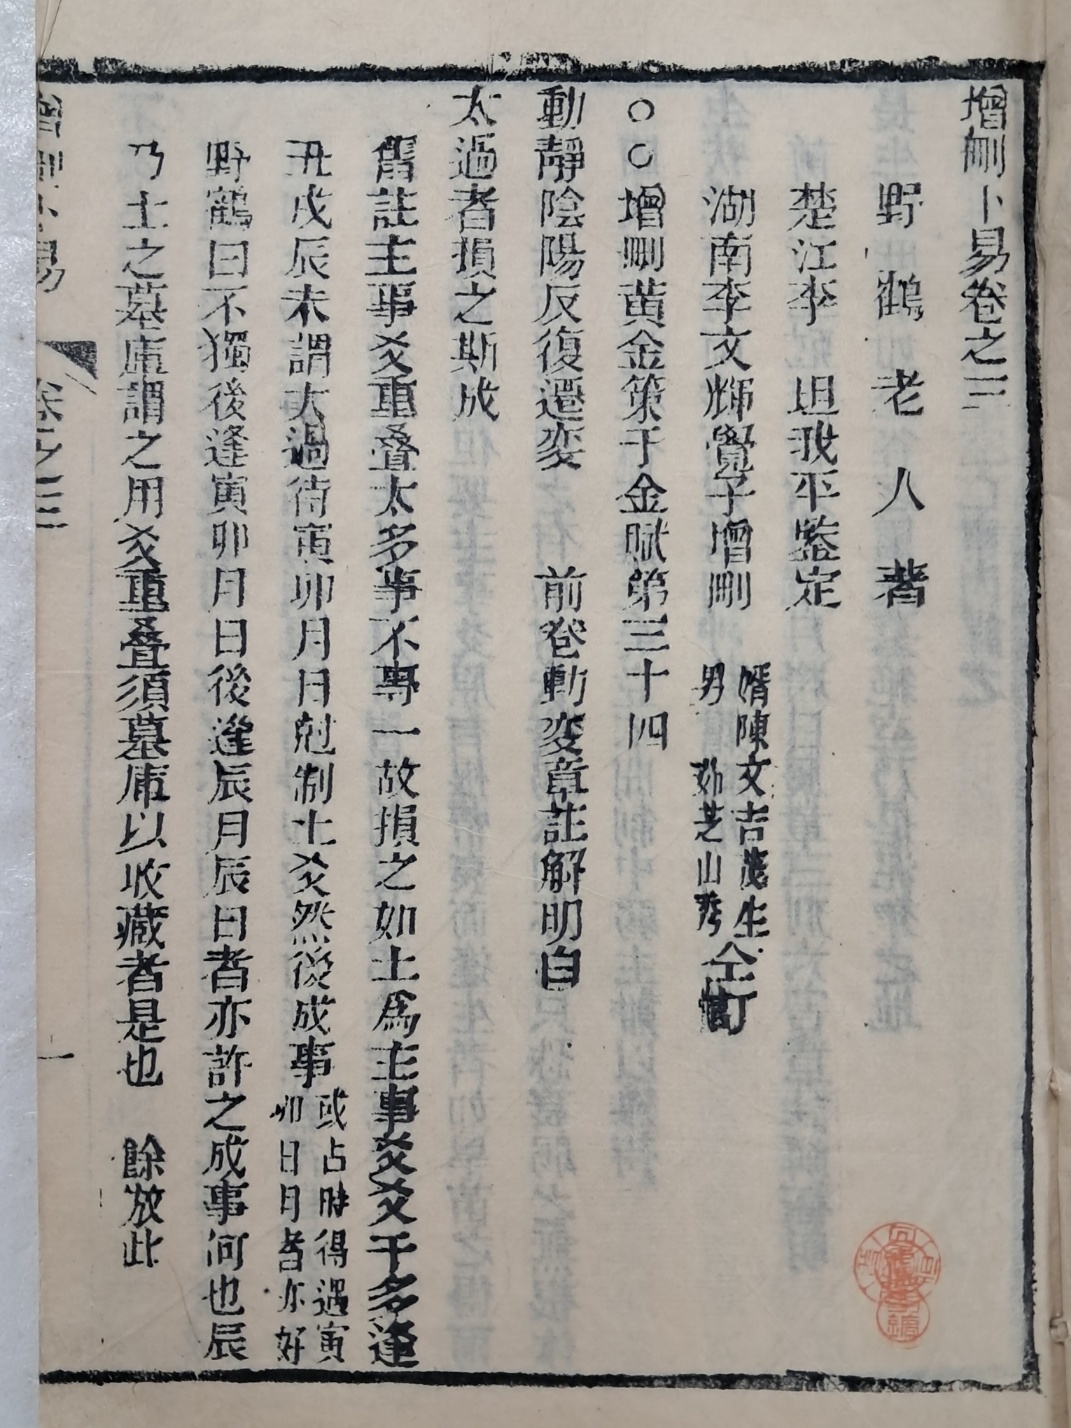 增刪卜易卷之三
野鶴老人著
楚江李坦我平鑒定
湖南李文輝覺子增刪
婿陳文吉茂生
男茹芝山秀
仝訂
○○增刪黃金策千金賦第三十四
動靜陰陽反復遷変 前卷動変章註解明白
太過者損之斯成
舊註主事爻重叠太多事不專一故損之如土爲主事爻爻中多逢
丑戌辰未謂太過待寅卯月日尅制土爻然後成事
或占時得遇寅
卯日月者亦好
野鶴曰不獨後逢寅卯月日後逢辰月辰日者亦許之成事何也辰
乃土之墓庫謂之用爻重叠須墓庫以收藏者是也 餘放此
增刪卜易
卷之三
一